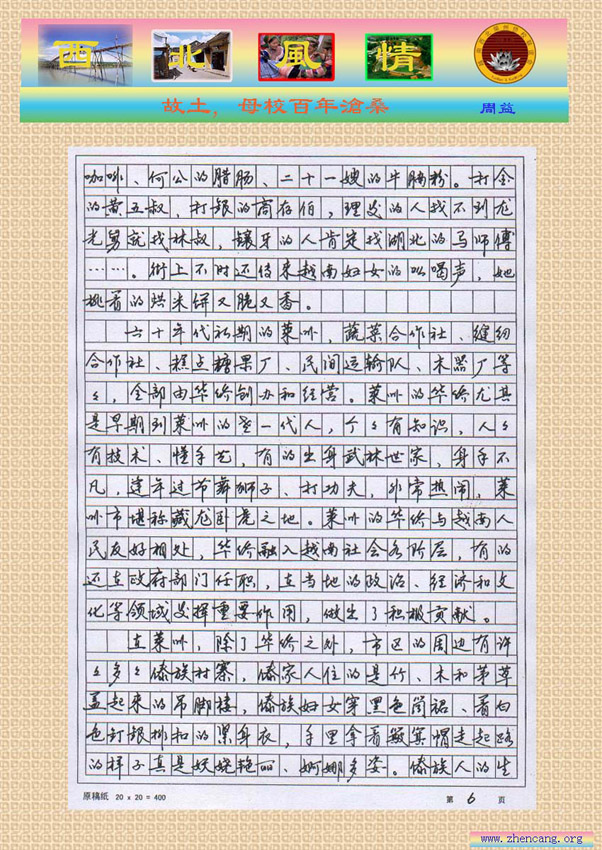 西北風情
故土，母校百年滄桑 周益
咖啡、何公的腊肠、二十一嫂的牛腩粉。打金
的黄五叔，打银的高存伯，理发的人找不到尤
光舅就找林叔，镶牙的人肯定找湖北的马师傅
……。街上不时还传来越南妇女的吆喝声，她
挑着的烘米饼又脆又香。
六十年代初期的莱州，蔬菜合作社、缝纫
合作社、糕点糖果厂、民间运输队、木器厂等
々，全部由华侨创办和经营。莱州的华侨尤其
是早期到莱州的老一代人，个々有知识，人々
有技术、懂手艺，有的出身武林世家，身手不
凡，逢年过节舞狮子、打功夫，非常热闹，莱
州市堪称藏龙卧虎之地。莱州的华侨与越南人
民友好相处，华侨融入越南社会各阶层，有的
还在政府部门任职，在当地的政治、经济和文
化等领域发挥重要作用，做出了积极贡献。
在莱州，除了华侨之外，市区的周边有许
々多々傣族村寨，傣家人住的是竹、木和茅草
盖起来的吊脚楼，傣族妇女穿黑色筒裙、着白
色钉银排扣的紧身衣，手里拿着凝箕帽走起路
的样子真是妖娆艳丽、婀娜多姿。傣族人的生
原稿纸 20 x 20 = 400 第 6 页
www.zhencang.org